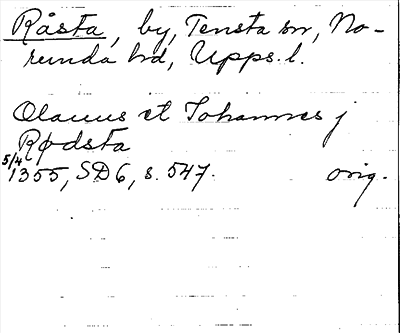 Råsta, by, Tensta sn, No-
runda hd, Upps. l.
Olauus et Johannes j
Rødsta
5/4 1355, SD 6, s. 547. orig.